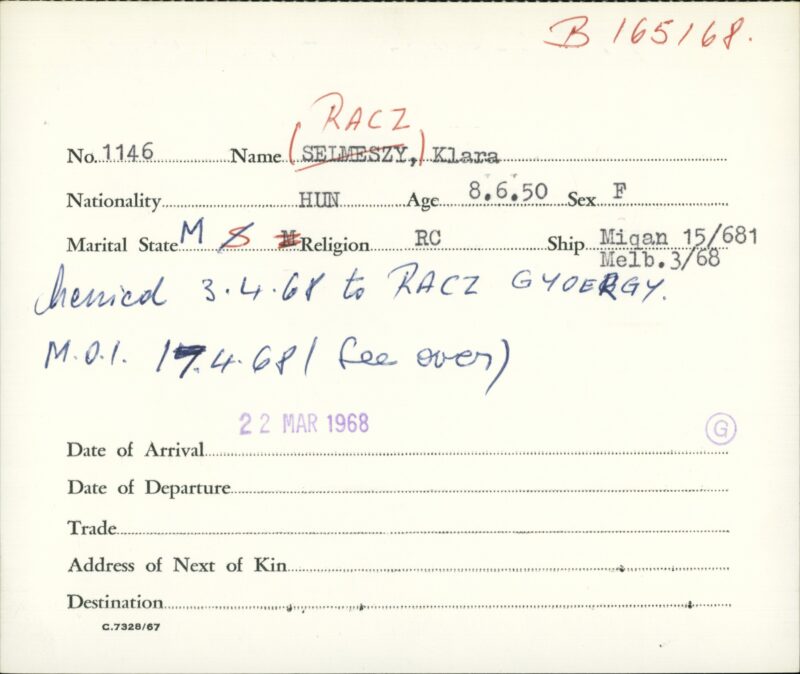 B 165168.
RACZ
No. 1146 Name (SELMESZY,) Klara
Nationality HUN Age 8.6.50 Sex F
Marital State M S M Religion RC Ship Miqan 15/681
Melb. 3/68
Married 3.4.68 to RACZ GYOERGY.
M.O.I. 17.4.68 (See over)
22 MAR 1968
G
Date of Arrival
Date of Departure
Trade
Address of Next of Kin
Destination
C.7328/67